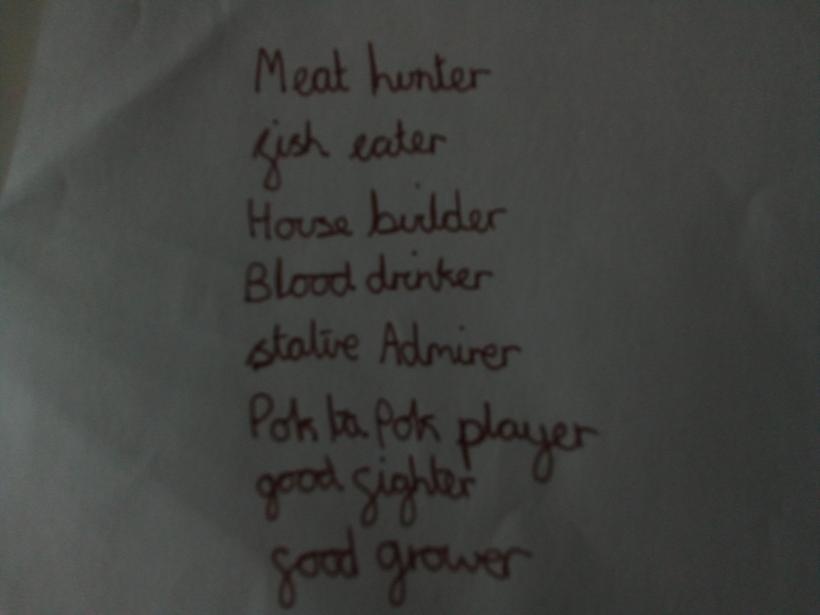 Meat hunter
fish eater
House builder
Blood drinker
statue Admirer
Pok ta Pok player
good fighter
food grower